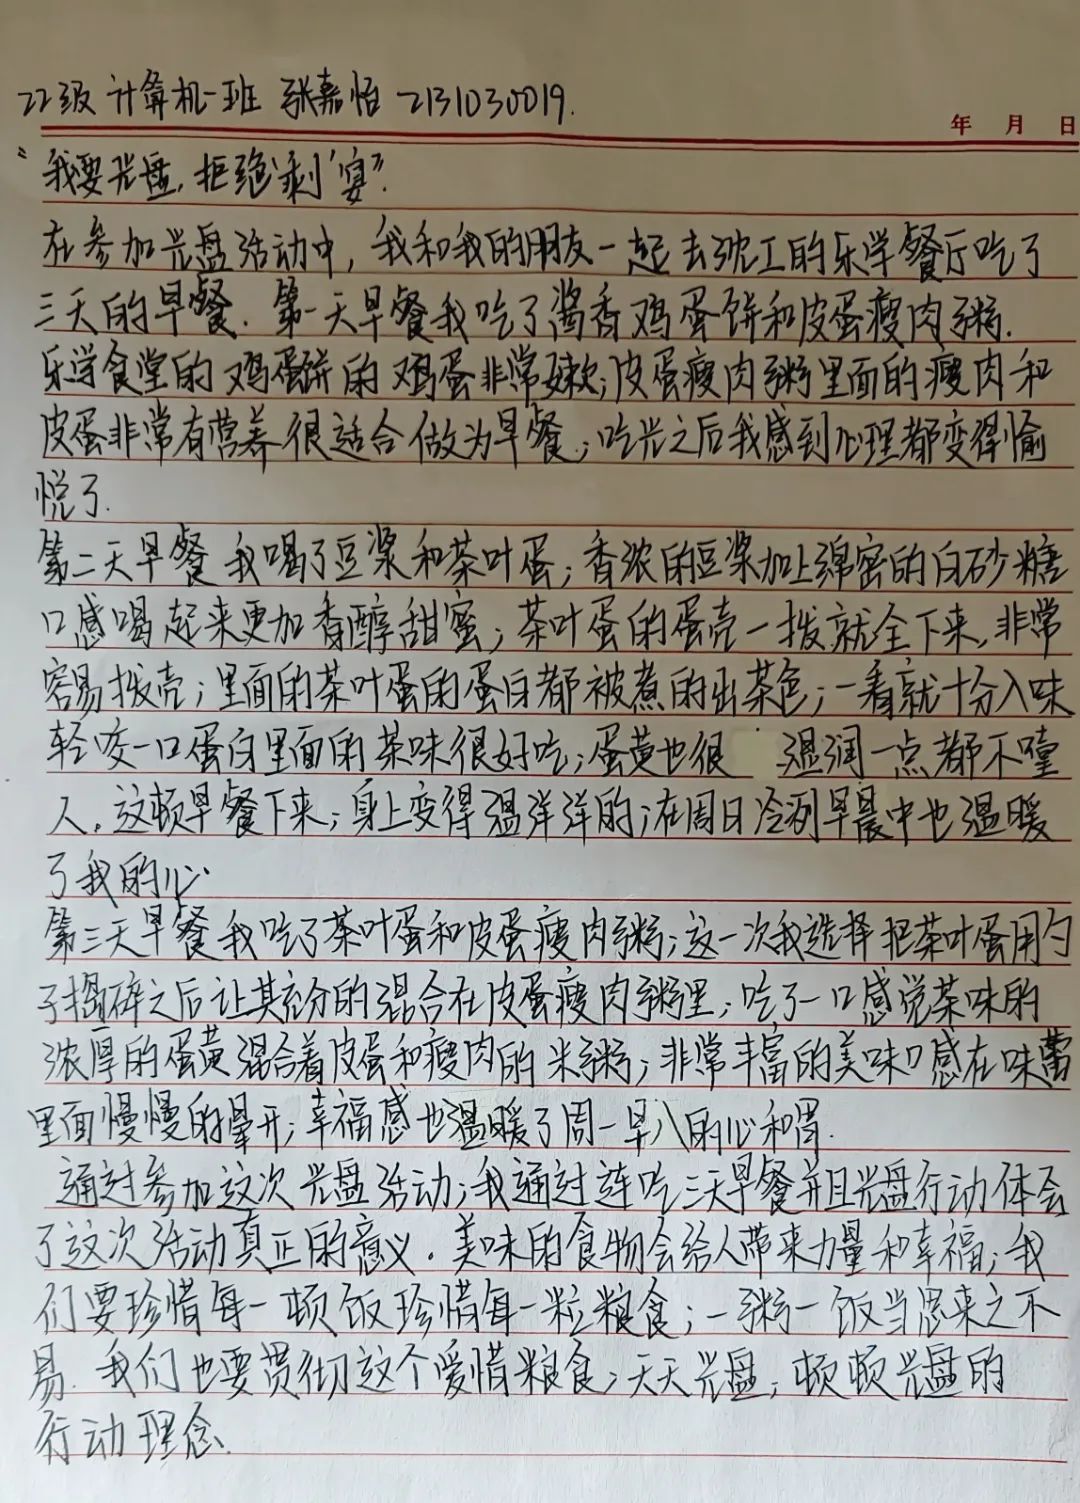 22级 计算机一班 张嘉怡 2131030019.
年 月 日
“我要光盘,拒绝‘剩’宴”.
在参加光盘活动中,我和我的朋友一起去沈工的乐学餐厅吃了
三天的早餐.第一天早餐我吃了酱香鸡蛋饼和皮蛋瘦肉粥.
乐学食堂的鸡蛋饼的鸡蛋非常嫩;皮蛋瘦肉粥里面的瘦肉和
皮蛋非常有营养很适合做为早餐;吃光之后我感到心理都变得愉
悦了.
第二天早餐我喝了豆浆和茶叶蛋;香浓的豆浆加上绵密的白砂糖
口感喝起来更加香醇甜蜜;茶叶蛋的蛋壳一拨就全下来,非常
容易拨壳;里面的茶叶蛋的蛋白都被煮的出茶色;一看就十分入味
轻咬一口蛋白里面的茶味很好吃;蛋黄也很 湿润一点都不噎
人。这顿早餐下来;身上变得温洋洋的;在周日冷冽早晨中也温暖
了我的心.
第三天早餐我吃了茶叶蛋和皮蛋瘦肉粥;这一次我选择把茶叶蛋用勺
子捣碎之后让其充分的混合在皮蛋瘦肉粥里;吃了一口感觉茶味的
浓厚的蛋黄混合着皮蛋和瘦肉的米粥;非常丰富的美味口感在味蕾
里面慢慢的晕开;幸福感也温暖了周一早八的心和胃.
通过参加这次光盘活动;我通过连吃三天早餐并且光盘行动体会
了这次活动真正的意义.美味的食物会给人带来力量和幸福;我
们要珍惜每一顿饭珍惜每一粒粮食;一粥一饭当思来之不
易.我们也要贯彻这个爱惜粮食;天天光盘;顿顿光盘的
行动理念.